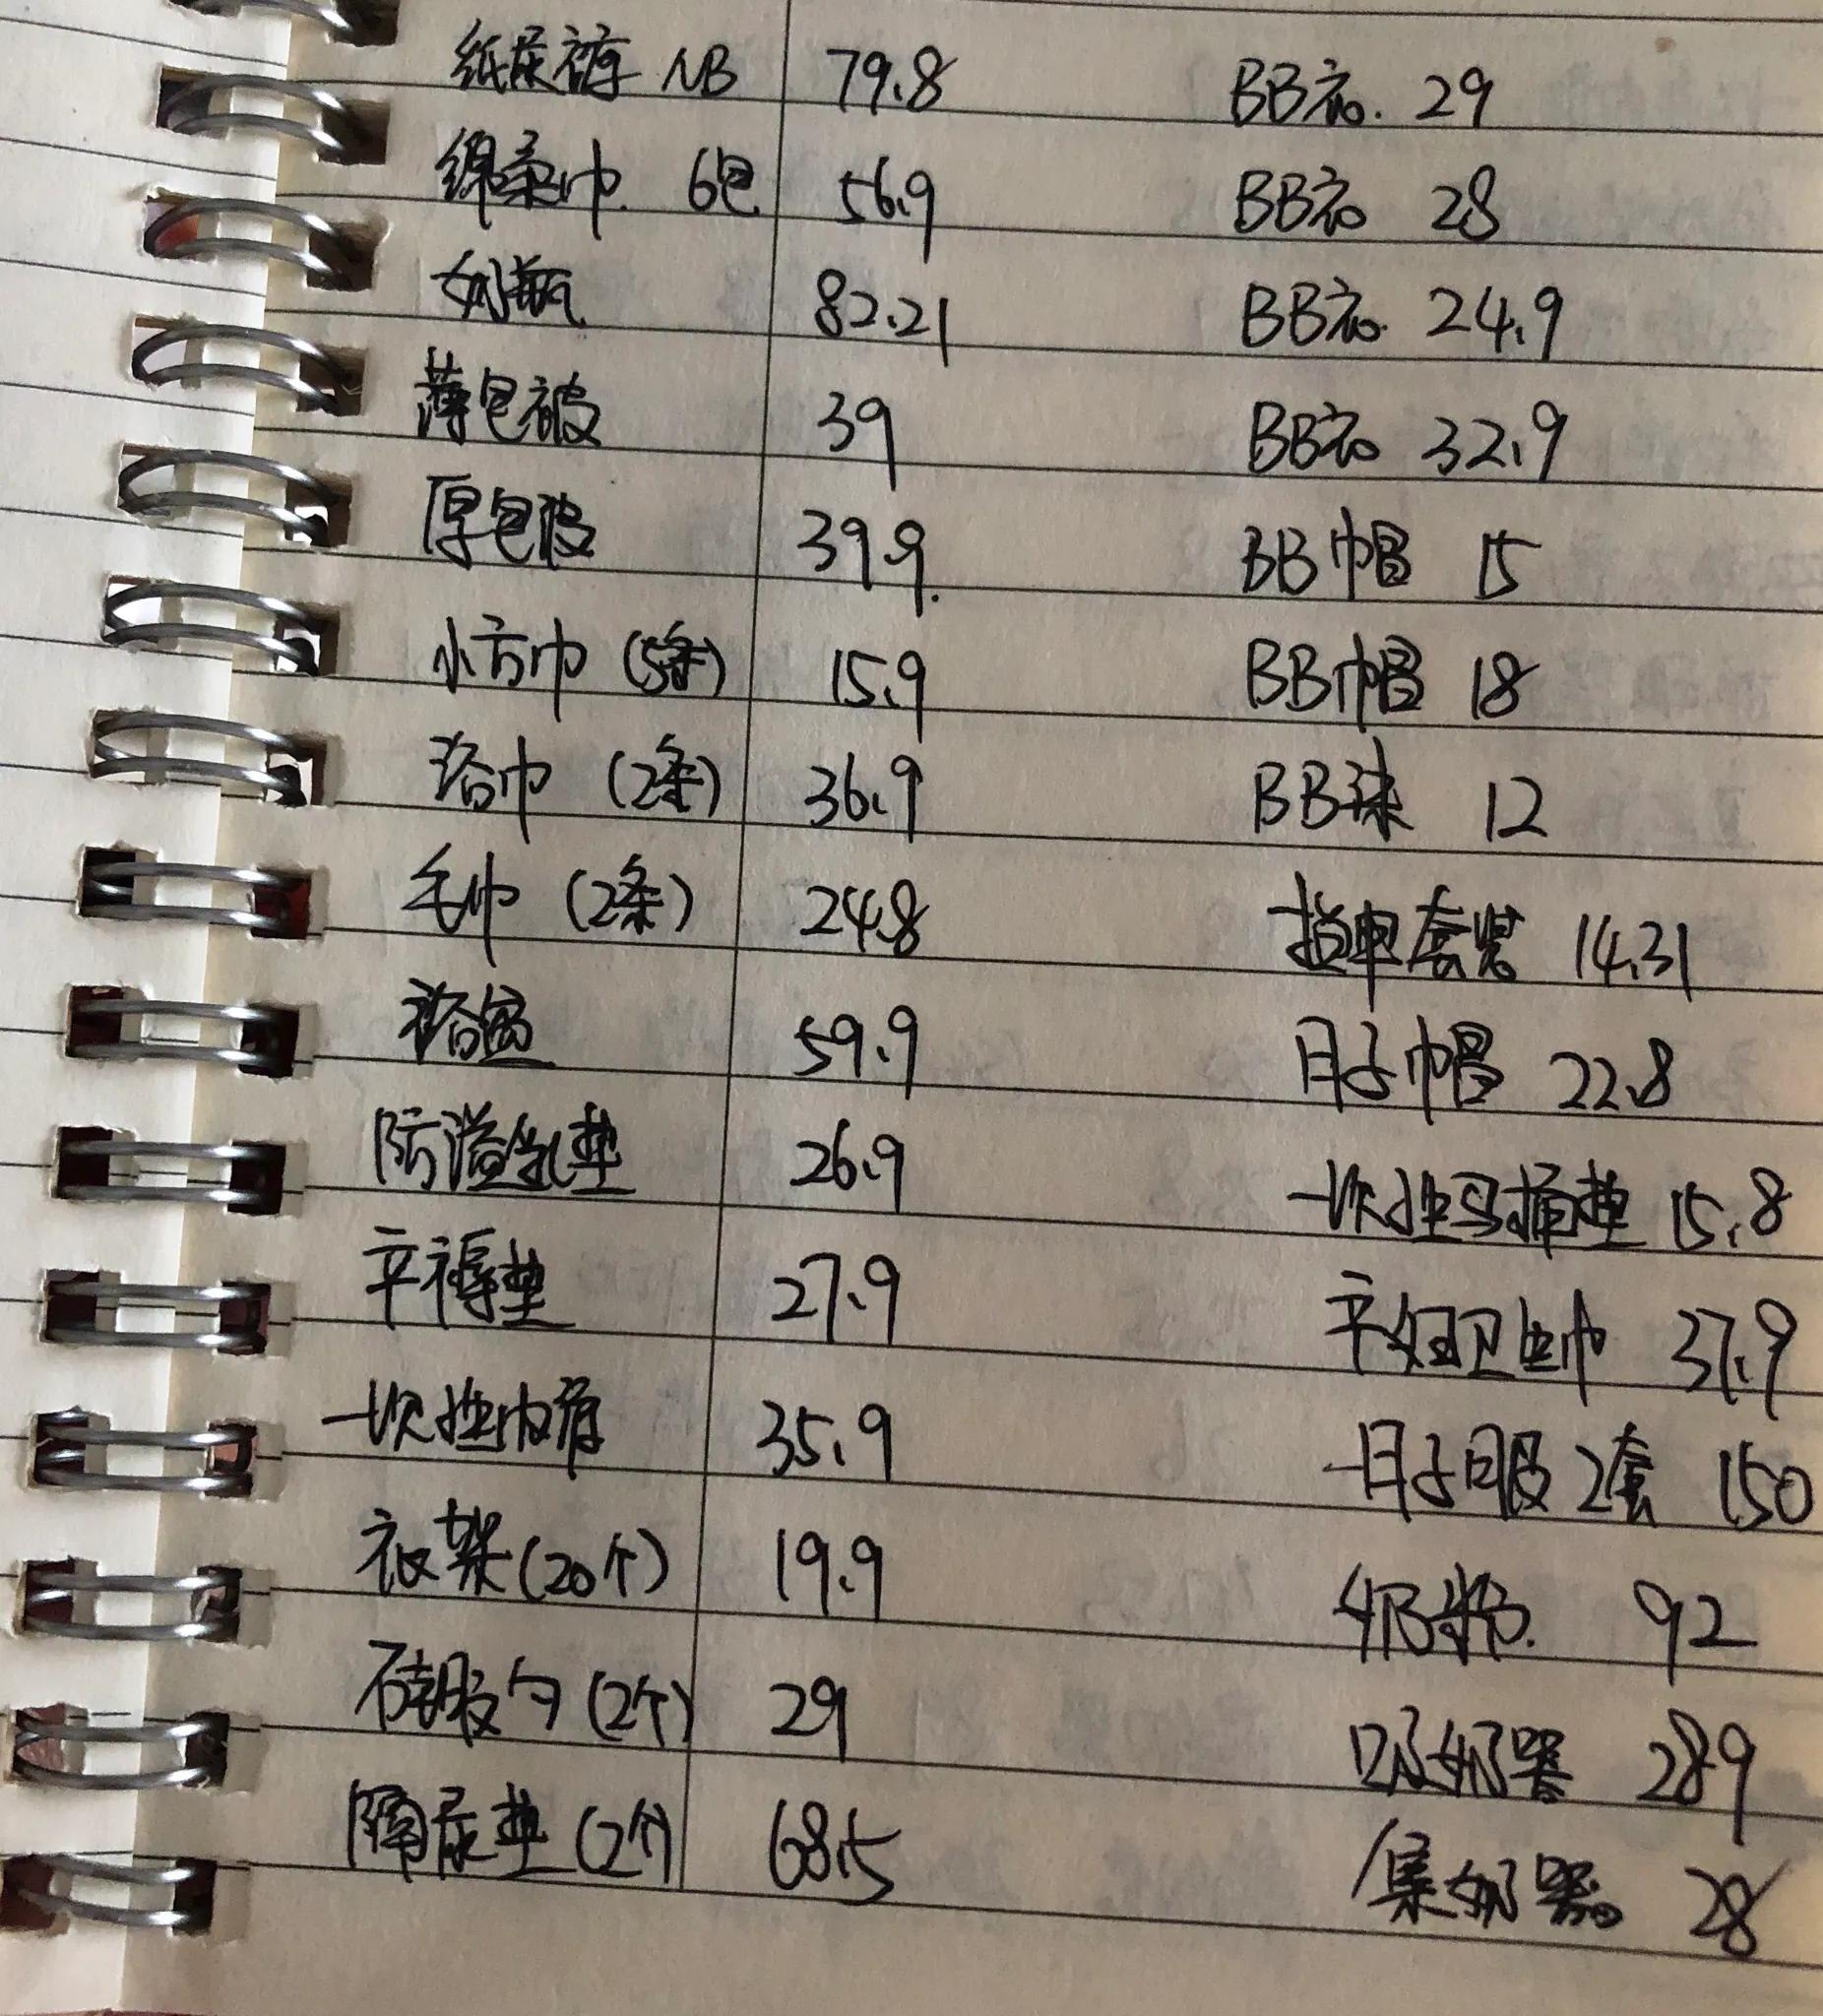 纸尿裤 NB 79.8
绵柔巾 6包 56.9
奶瓶 82.21
薄包被 39
厚包被 39.9
小方巾 (5条) 15.9
浴巾 (2条) 36.9
毛巾 (2条) 24.8
浴盆 59.9
防溢乳垫 26.9
产褥垫 27.9
一次性内裤 35.9
衣架 (20个) 19.9
硅胶勺 (2个) 29
隔尿垫 (2个) 68.5
BB衣 29
BB衣 28
BB衣 24.9
BB衣 32.9
BB帽 15
BB帽 18
BB袜 12
套装 14.31
月子帽 22.8
一次性马桶垫 15.8
产妇卫生巾 37.9
月子服 2套 150
奶粉 92
吸奶器 289
集奶器 28